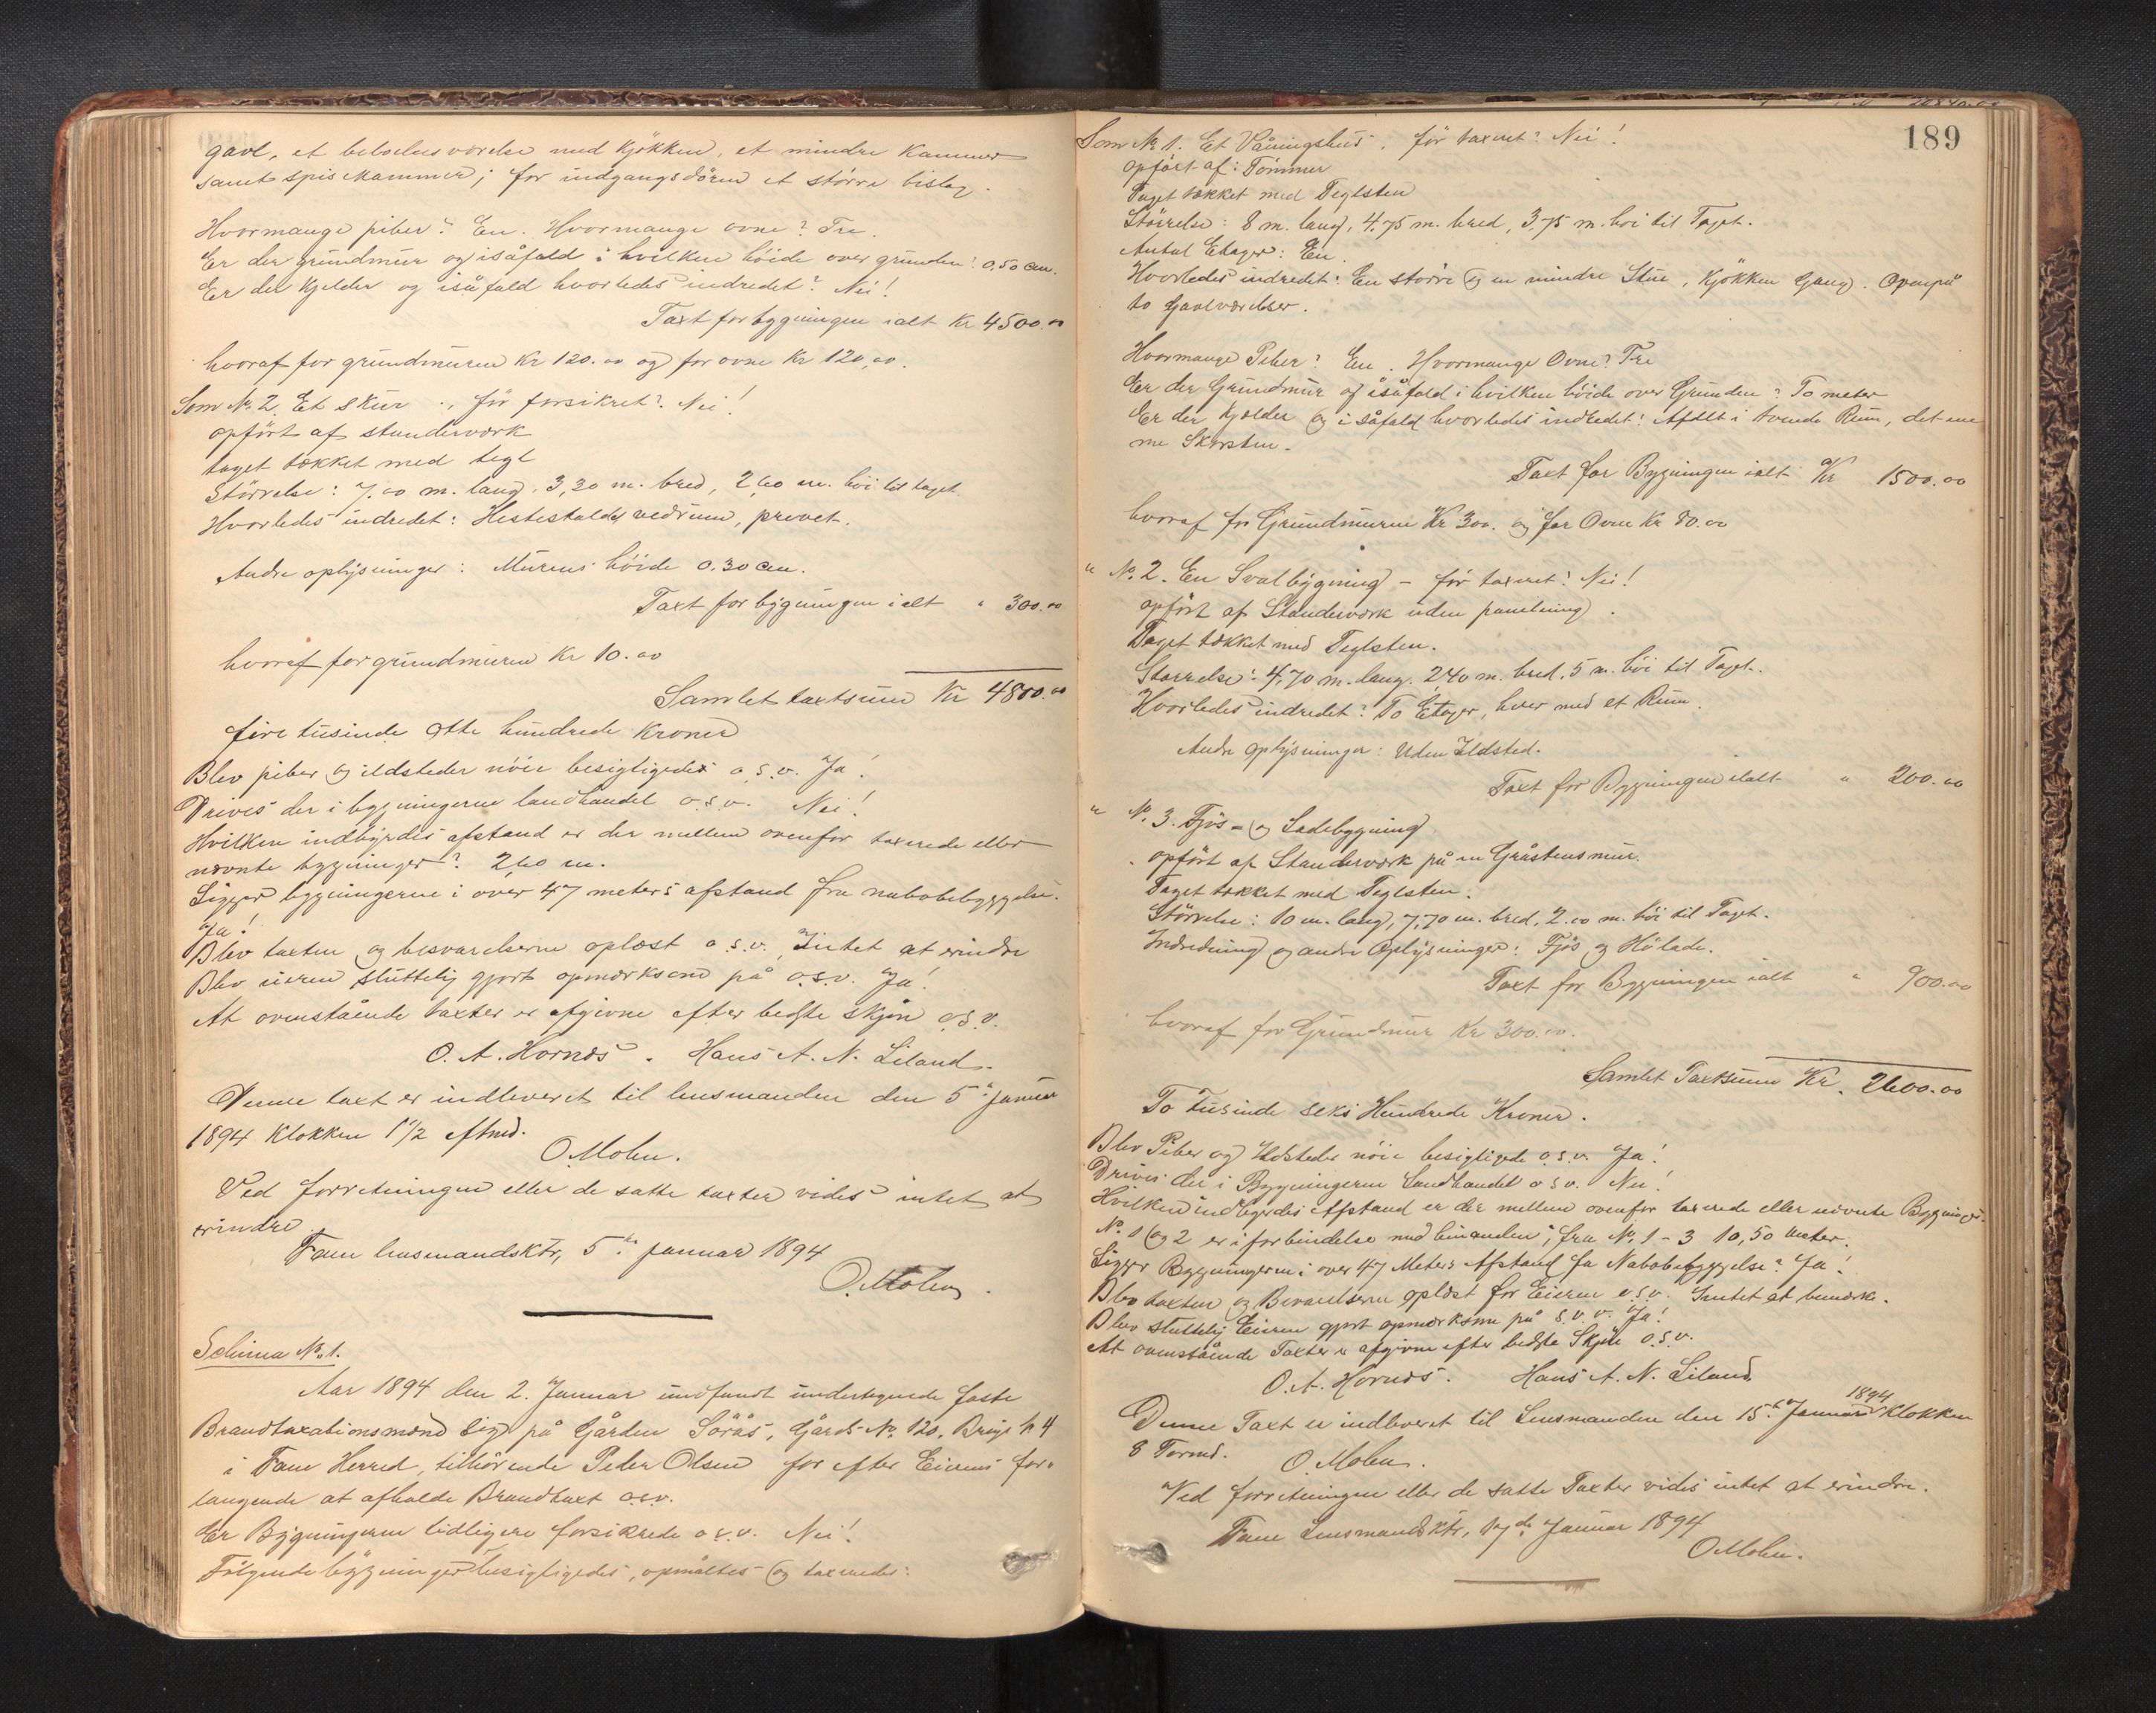 gavl, et beboelsesværelse med kjøkken, et mindre kammer
samt spiskammer; for indgangsdøren et større bislag.
Hvormange piber? En. Hvormange ovne? Tre.
Er der grundmur og isåfald i hvilken høide over grunden? 0,50 cm.
Er der kjelder og isåfald hvorledes indredet? Nei!
Taxt for bygningen ialt Kr 4500.00
hvoraf for grundmuren Kr 120.00 og for ovne Kr 120,00.
Som No. 2. Et skur ., før forsikret? Nei!
opført af stenderværk
taget tækket med tegl
Størrelse: 7,00 m. lang, 3,30 m. bred, 2,60 m. høi til taget.
Hvorledes indredet: Hestestald, vedrum, privet.
Andre oplysninger: Murens høide 0.30 cm.
Taxt for bygningen ialt " 300.00
hvoraf for grundmuren Kr 10.00
Samlet taxtsum Kr 4800.00
fire tusinde otte hundrede kroner
Blev piber og ildsteder nøie besigtigede o.s.v. Ja!
Drives der i bygningerne landhandel o.s.v. Nei!
Hvilken indbyrdes afstand er der mellem ovenfor taxerede eller
nævnte bygninger? 2,60 m.
Ligger bygningerne i over 47 meters afstand fra nabobebyggelse.
Ja!
Blev taxten og besvarelserne oplæst o.s.v. Intet at erindre
Blev eieren sluttelig gjort opmærksom på o.s.v. Ja!
At ovenstående taxter er afgivne efter bedste skjøn o.s.v.
O. A. Hornæs. Hans A. N. Liland.
Denne taxt er indleveret til lensmanden den 5te januar
1894 klokken 1 1/2 eftmd.
O. Mohn.
Ved forretningen eller de satte taxter vides intet at
erindre.
Fane lensmandsktr, 5te januar 1894
O. Mohn.
Schema No. 1.
Aar 1894 den 2. Januar indfandt undertegnede faste
Brandtaxationsmænd sig på Gården Sörås, Gårds No. 120, Brugs No 4
i Fane Herred, tilhørende Peder Olsen for efter Eierens for-
langende at afholde Brandtaxt o.s.v.
Er Bygningerne tidligere forsikrede o.s.v. Nei!
Følgende bygninger besigtigedes, opmåltes og taxeredes:
189
Som No 1. Et Våningshus, før taxeret? Nei!
opført af: Tømmer
Taget tækket med Teglsten
Størrelse: 8 m. lang, 4,75 m. bred, 3,75 m. høi til Taget.
Antal Etager: En.
Hvorledes indredet: En større og en mindre Stue, Kjøkken Gang. Ovenpå
to Gavlværelser.
Hvormange Piber? En. Hvormange Ovne? Tre
Er der Grundmur og isåfald i hvilken høide over Grunden? To meter
Er der Kjælder og i såfald hvorledes indredet? Afdelt i tvende Rum, det ene
me Skorsten.
Taxt for Bygningen ialt Kr 1500.00
hvoraf for Grundmuren Kr 300. og for Ovne Kr 80.00
" No. 2. En Svalbygning – før taxeret? Nei!
opført af Stenderværk uden panelning.
Taget tækket med Teglsten.
Størrelse: 4,70 m. lang. 2,40 m. bred, 5 m. høi til Taget.
Hvorledes indredet? To Etager, hver med et Rum.
Andre oplysninger: Uden Ildsted.
Taxt for Bygningen ialt " 200.00
" No. 3. Fjøs- og Ladebygning,
opført af Stenderværk på en Gråstensmur.
Taget tækket med Teglsten.
Størrelse: 10 m. lang, 7,70 m. bred, 2.00 m. høi til Taget.
Indredning og andre Oplysninger: Fjøs og Hølade.
Taxt for Bygningen ialt " 900.00
hvoraf for Grundmur Kr 300.00.
Samlet Taxtsum Kr. 2600.00
To tusinde seks Hundrede Kroner.
Blev Piber og Ildsteder nøie besigtigede o.s.v. Ja!
Drives der i Bygningerne Landhandel o.s.v. Nei!
Hvilken indbyrdes Afstand er der mellem ovenfor taxerede eller nævnte Bygninger.
No. 1 og 2 er i forbindelse med hinanden; fra No. 1 – 3 10,50 meter.
Ligger Bygningerne i over 47 Meters Afstand fra Nabobebyggelse? Ja!
Blev taxten og Besvarelserne oplæst for Eieren o.s.v. Intet at bemærke.
Blev sluttelig Eieren gjort opmærksom på o.s.v. Ja!
At ovenstående Taxter er afgivne efter bedste Skjøn o.s.v.
O. A. Hornæs. Hans A. N. Liland
Denne Taxt er indleveret til Lensmanden den 15de Januar 1894 Klokken
8 Formd. O. Mohn.
Ved forretningen eller de satte Taxter vides intet at erindre.
Fane Lensmandsktr, 17de Januar 1894
O. Mohn.